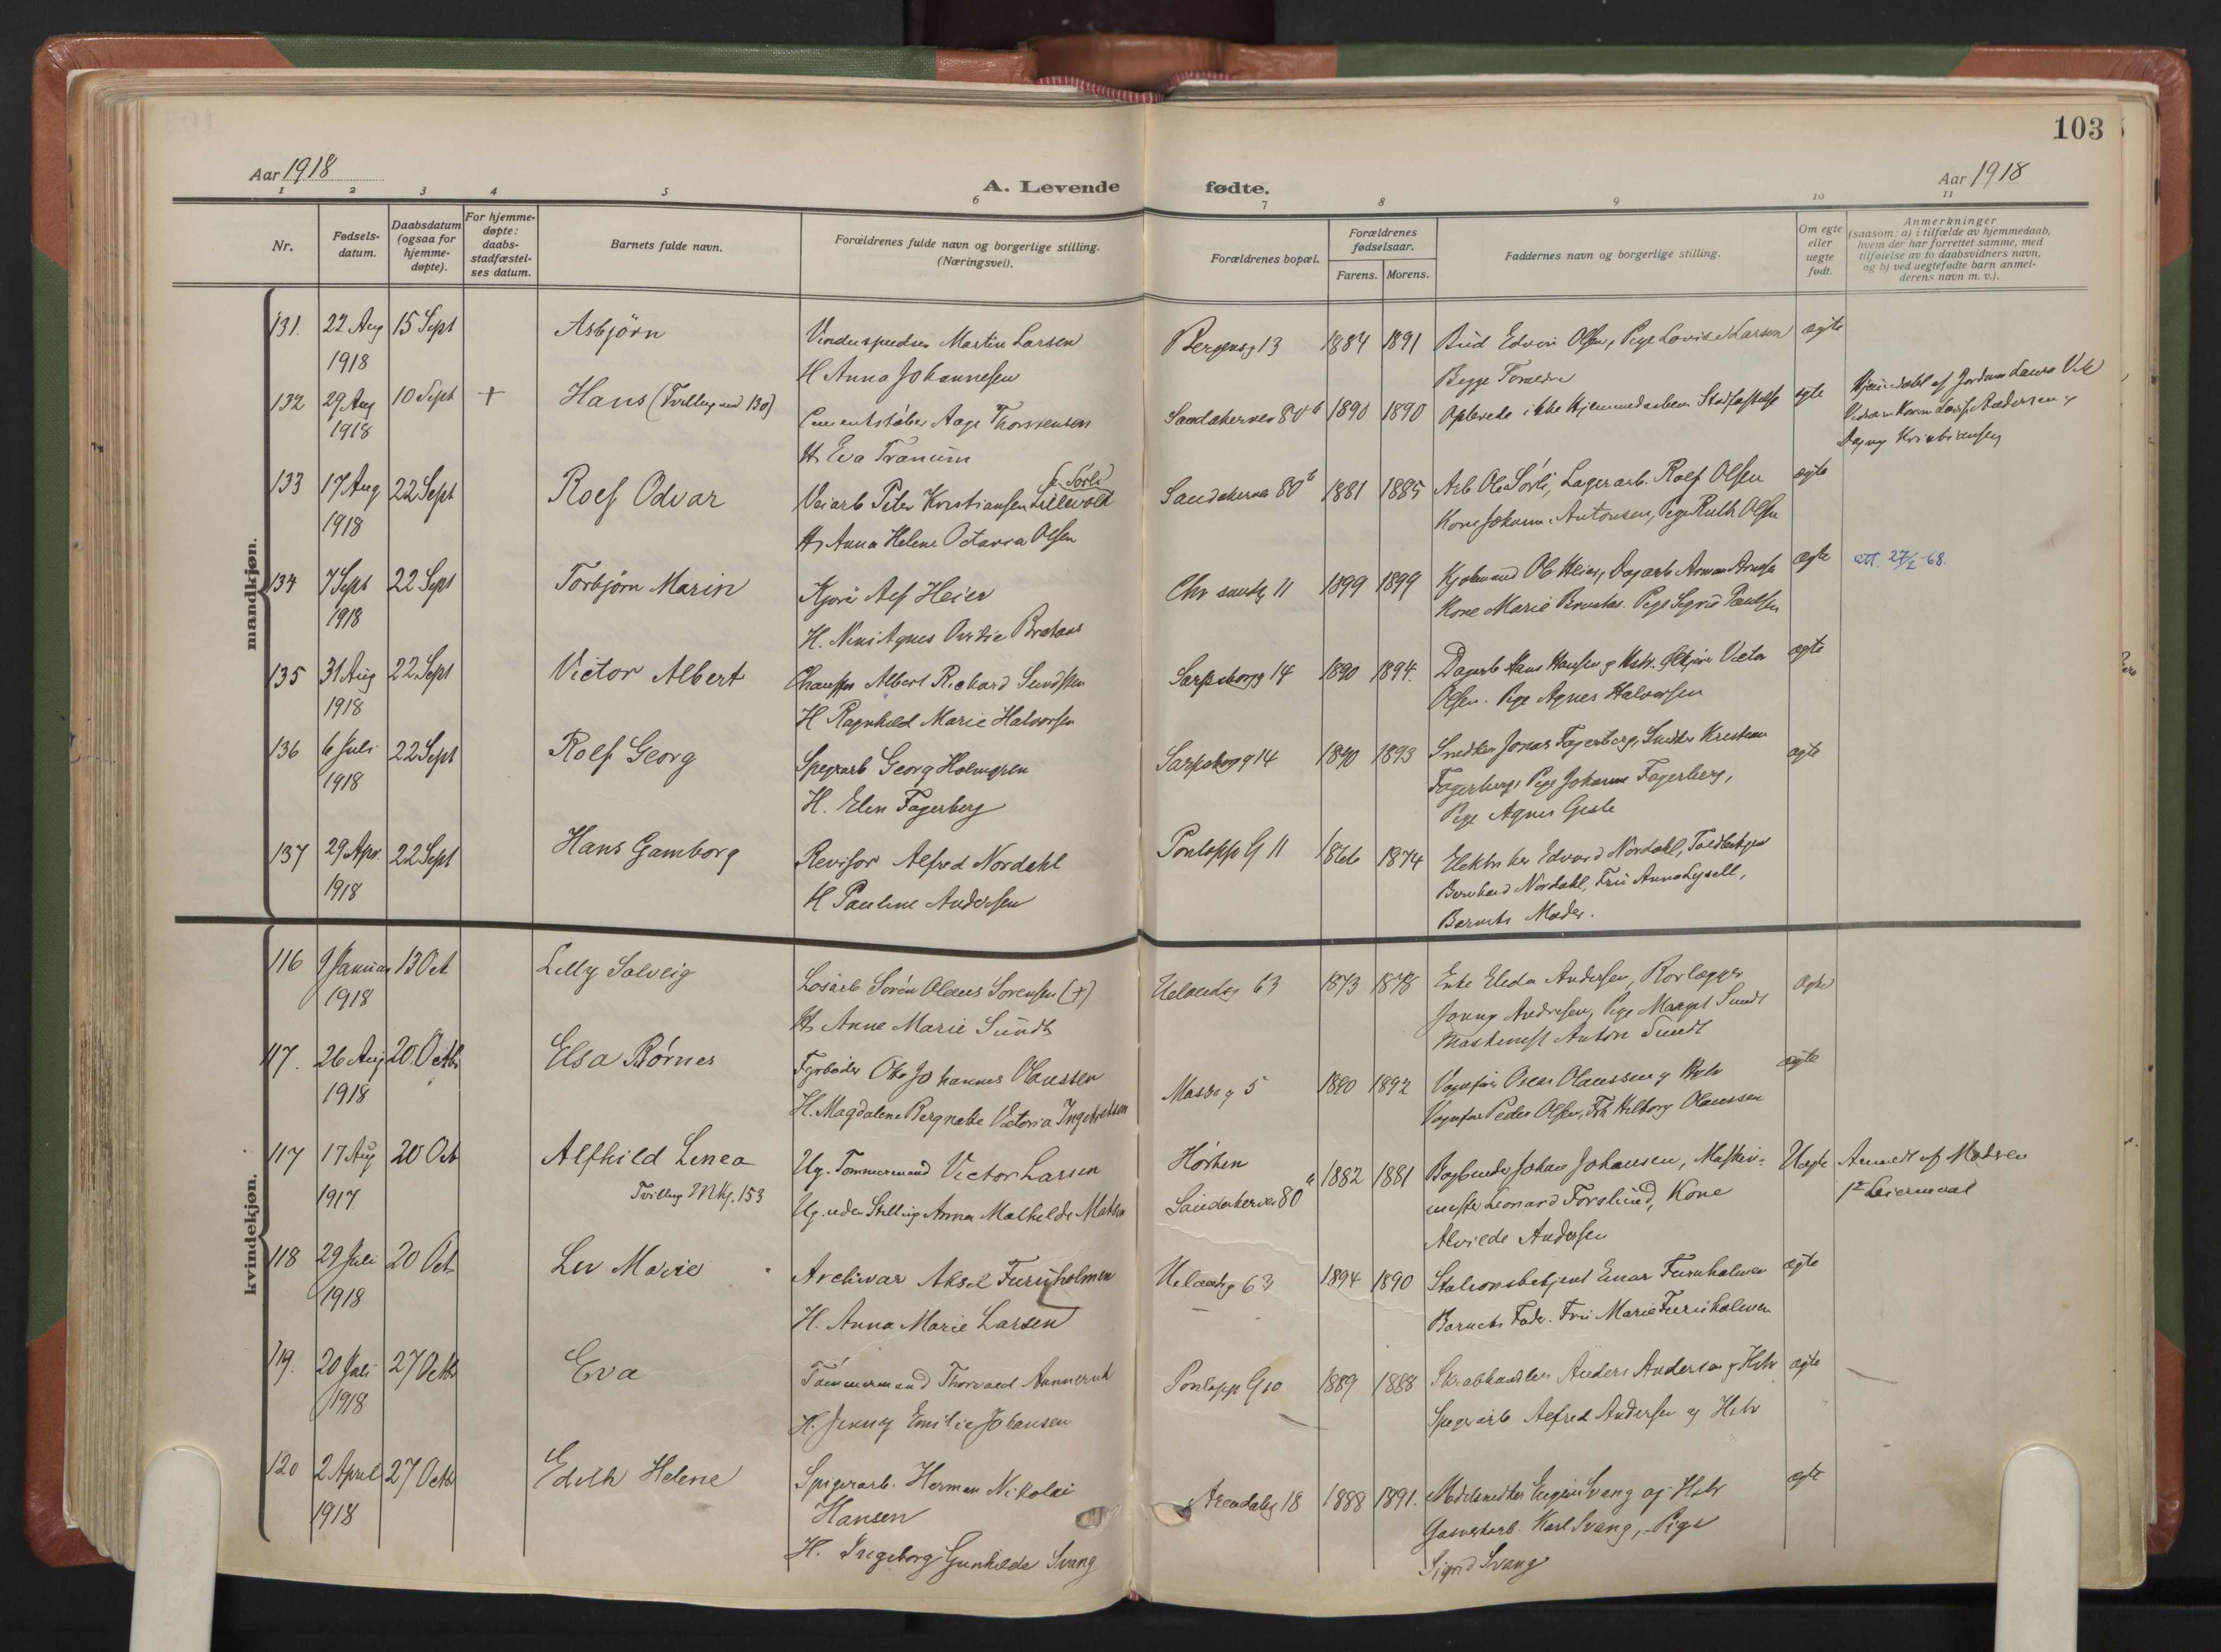 103
Aar 1918
A. Levende fødte.
Aar 1918
1 2 3 4 5 6 7 8 9 10 11
Nr.
Fødsels-
datum.
Daabsdatum
(ogsaa for
hjemme-
døpte).
For hjemme-
døpte:
daabs-
stadfæstel-
ses datum.
Barnets fulde navn.
Forældrenes fulde navn og borgerlige stilling.
(Næringsvei).
Forældrenes bopæl.
Forældrenes
fødselsaar.
Farens. Morens.
Faddernes navn og borgerlige stilling.
Om egte
eller
uegte
født.
Anmerkninger
(saasom: a) i tilfælde av hjemmedaab,
hvem der har forrettet samme, med
tilføielse av to daabsvidners navn,
og b) ved uegtefødte barn anmel-
derens navn m. v.).
mandkjøn.
131. 22 Aug 15 Sept Asbjörn Martin Larsen 13 1884 1891 Bud Edvin Olsen, Pige Lovise Larsen ægte
1918 H Anna Johannesen Begge Forældre
132 29 Aug 10 Sept + Hans (Tvilling med 130) Cementstøber Aage Thorstensen Sandakerveien 80 b 1890 1890 Oplevede ikke Hjemmedaabens Stadfæstelse ægte Hjemmedøbt af Jordm Laura
1918 H Eva Tranum Andersen og
Dagny Kristiansen
133 17 Aug 22 Sept Rolf Odvar Veiarb Peter Kristiansen Lillevold Sandakerv 80 b 1881 1885 Arb Ole Sörli, Lagerarb. Rolf Olsen ægte
1918 H Anna Helene Octavia Olsen Kone Johanne Antonsen, Pige Ruth Olsen
134 7 Sept 22 Sept Torbjörn Marin Alf Heier Chr sandg 11 1899 1899 ægte att. 27/2-68.
1918 H. Agnes Kone Marie Pige Sigrid Paulsen
135 31 Aug 22 Sept Victor Albert Chauffør Albert Richard Sundsten Sarpsborgg 14 1890 1894. Dagarb Hans Hansen og Hstr. Victor ægte
1918 H Ragnhild Marie Halvorsen Olsen. Pige Agnes Halvorsen
136 6 Juli 22 Sept Rolf Georg Georg Holmgren Sarpsborgg 14 1890 1893 Snedker Jonas Fagerberg, Snedker Kristian ægte
1918 H. Elin Fagerberg Fagerberg, Pige Johanne Fagerberg,
Pige Agnes
137 29 Apr. 22 Sept Hans Gamborg Revisor Alfred Nordahl Pontopp G 11 1866 1874 Edvard Nordahl,
1918 H Pauline Andersen Bernhard Nordahl, Fru Anna Lysell,
Barnets Moder.
kvindekjøn.
116 9 Januar 13 Oct Lilly Solveig Løsarb Sören Olaus Sorensen (+) Uelandsg 63 1873 1878 Enke Elida Andersen, Rørlægger ægte
1918 H Anne Marie Sundt Andresen, Pige Margit Sundt
Maskinist Anton Sundt
117. 26 Aug 20 Octb Elsa Börnes Fyrbøder Johannes Olaussen 5 1890 1892 Vognfører Oscar Olaussen og Hstr ægte
1918 H. Magdalene Victoria Ingebretsen Vognfører Peder Olsen, Frk Valborg Olaussen
117 17 Aug 20 Oct Alfhild Linea Ug. Tømmermand Victor Larsen 1882 1881 Bogbinder Johan Johansen, Maskin- Uægte Anmeldt af Moderen
1917 Tvilling M Kj. 153 Ug. uden Stilling Anna Mathilde Sandakerveien 80 a mester Leonard Forslund, Kone 1ste Leiermaal
Alvilde Andersen
118 29 Juli 20 Oct Liv Marie Archivar Aksel Furuholmen Uelandsg 63 1894 1890 Stationsbetjent Einar Furuholmen ægte
1918 H. Anna Marie Larsen Barnets Fader. Fru Marie Furuholmen
119. 20 Juli 27 Octbr Eva Tömmermand Thorvald Pontopp G 10 1889 1888 Anders Andersen og Hstr ægte
1918 H. Jenny Emilie Johansen Alfred Andersen og Hstr
120 2 April 27 Octbr Edith Helene Spigerarb. Herman Nikolai Arendalsg 18 1888 1891. Modelsnedker Svang og Hstr ægte
1918 Hansen Gasverkarb. Karl Svang, Pige
H. Ingeborg Gunhilde Svang Sigrid Svang